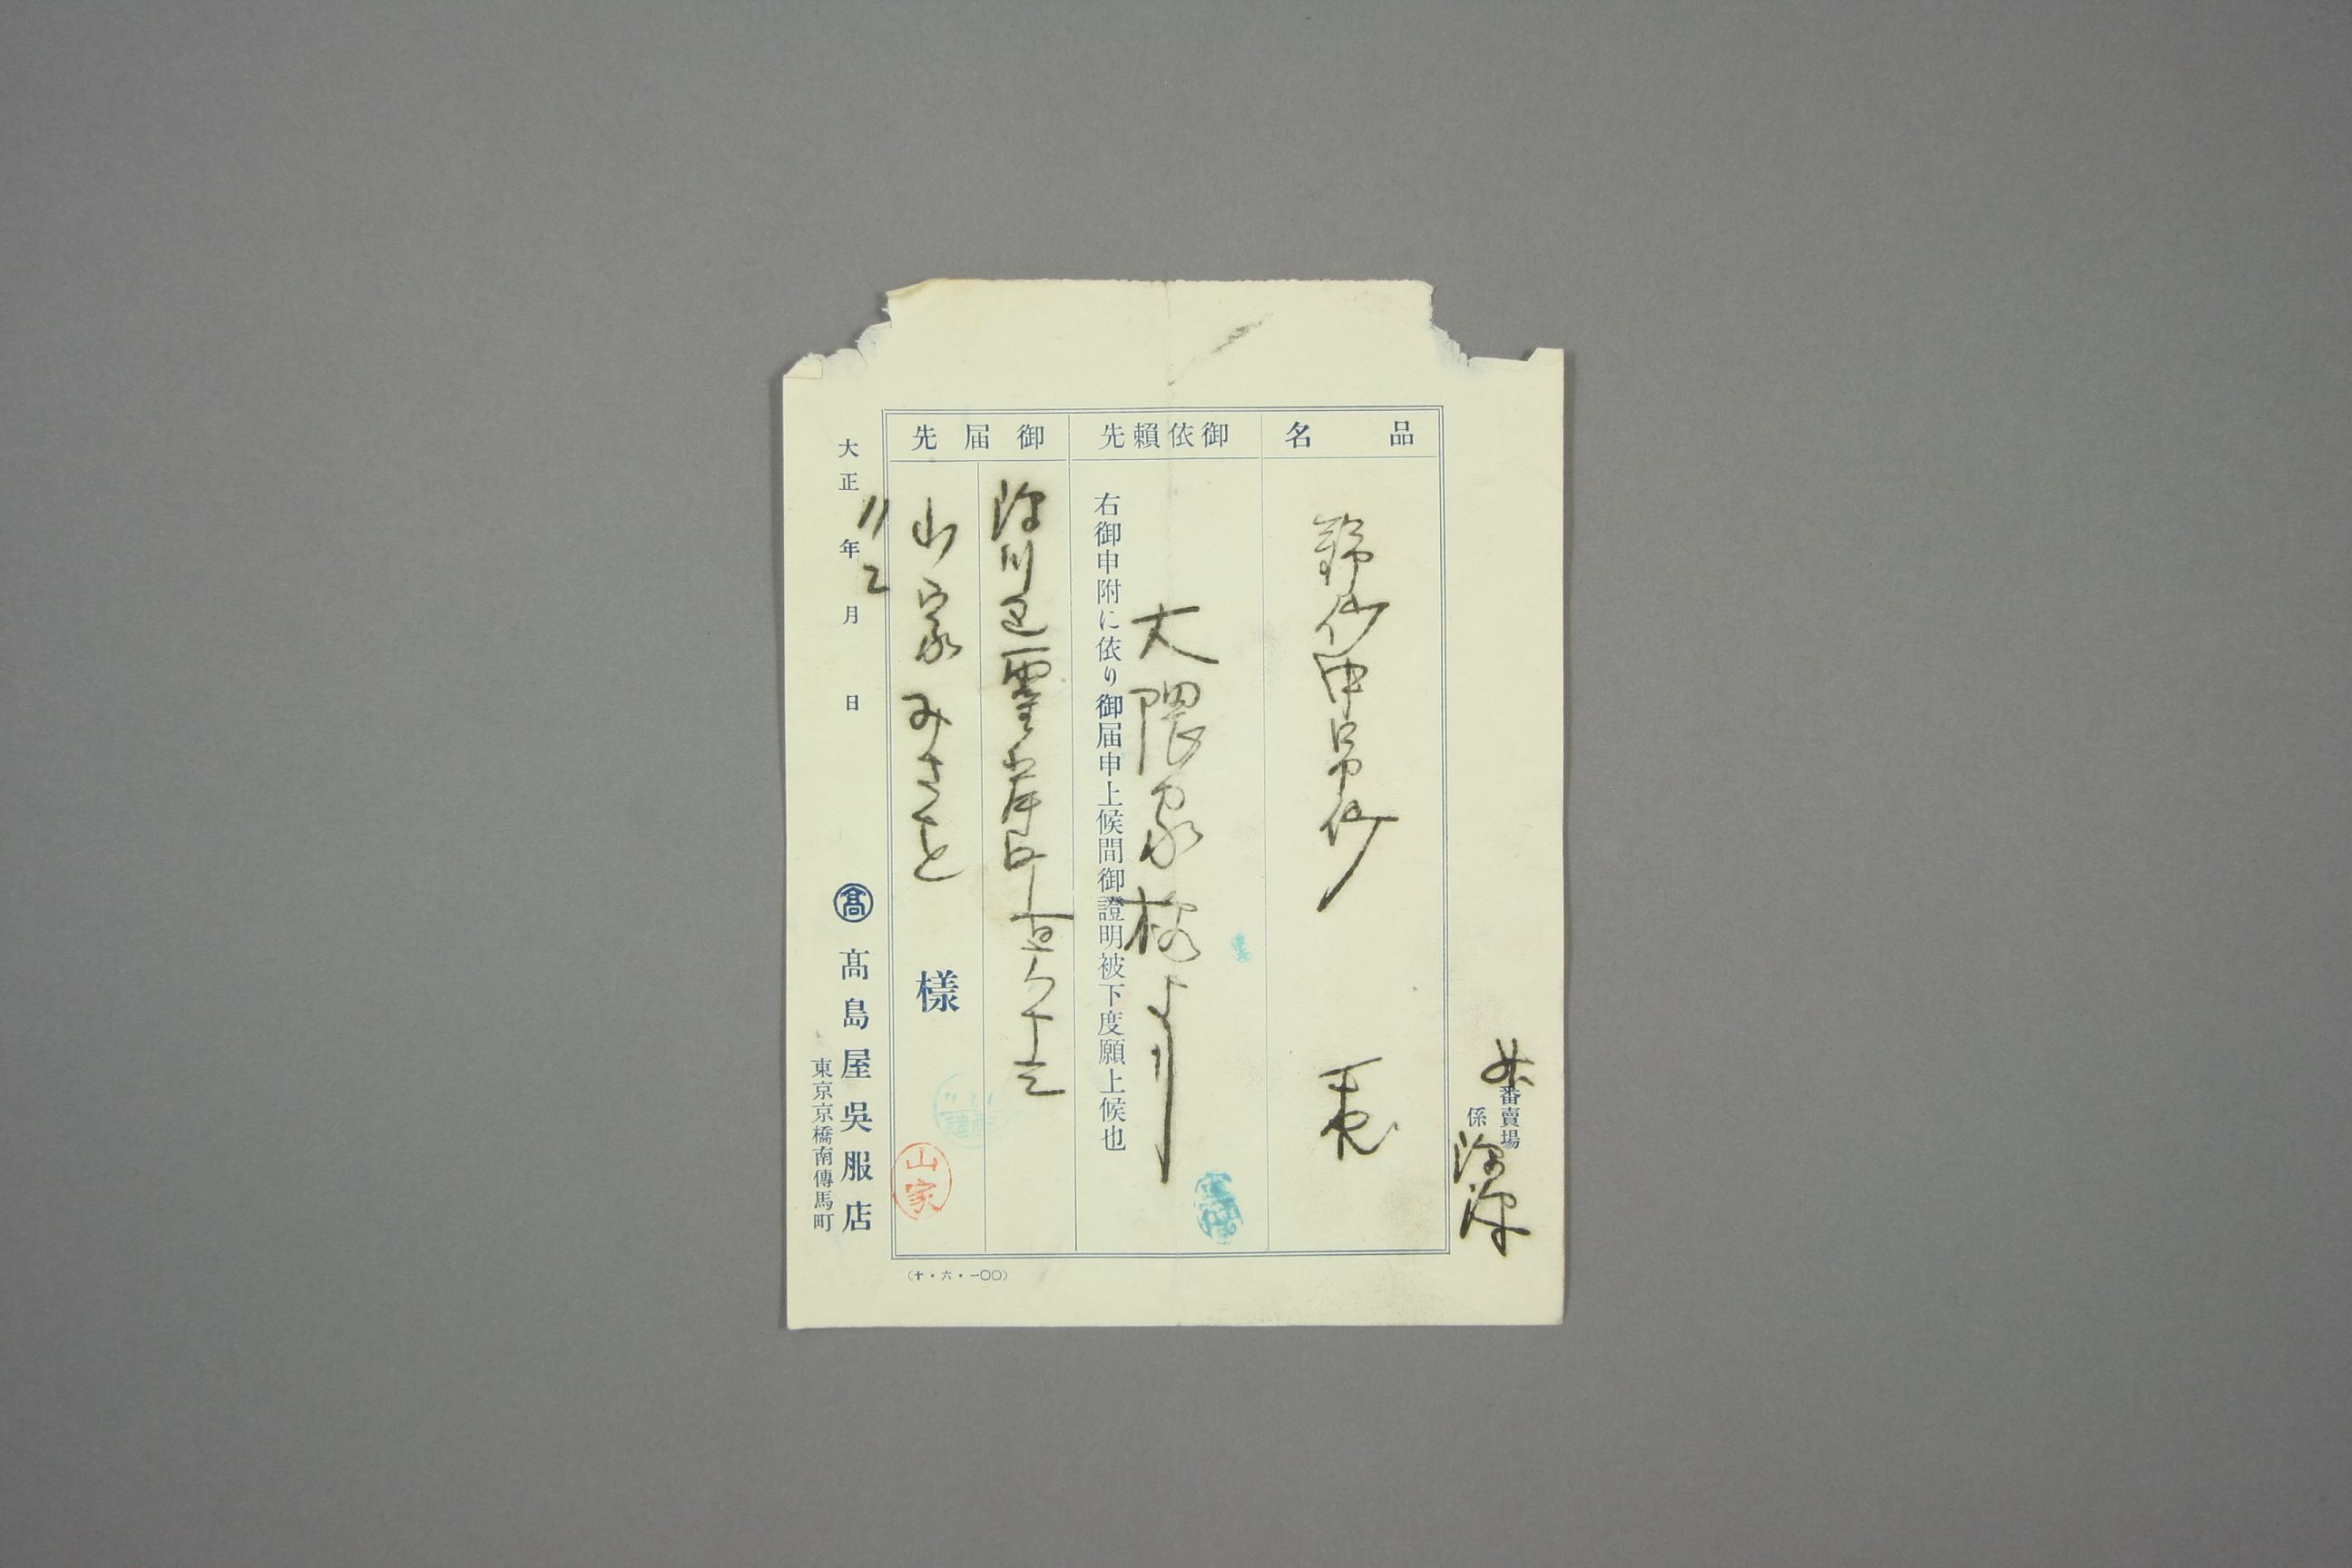 番賣場
係
品名
御依頼先
大隈家様より
右御申附に依り御届申上候間御證明被下度願上候也
御届先
深川區霊岸町百六十三
山家みさと
様
山家
大正11年2月日
髙
髙島屋吳服店
東京京橋南傳馬町
(十・六・一〇〇)